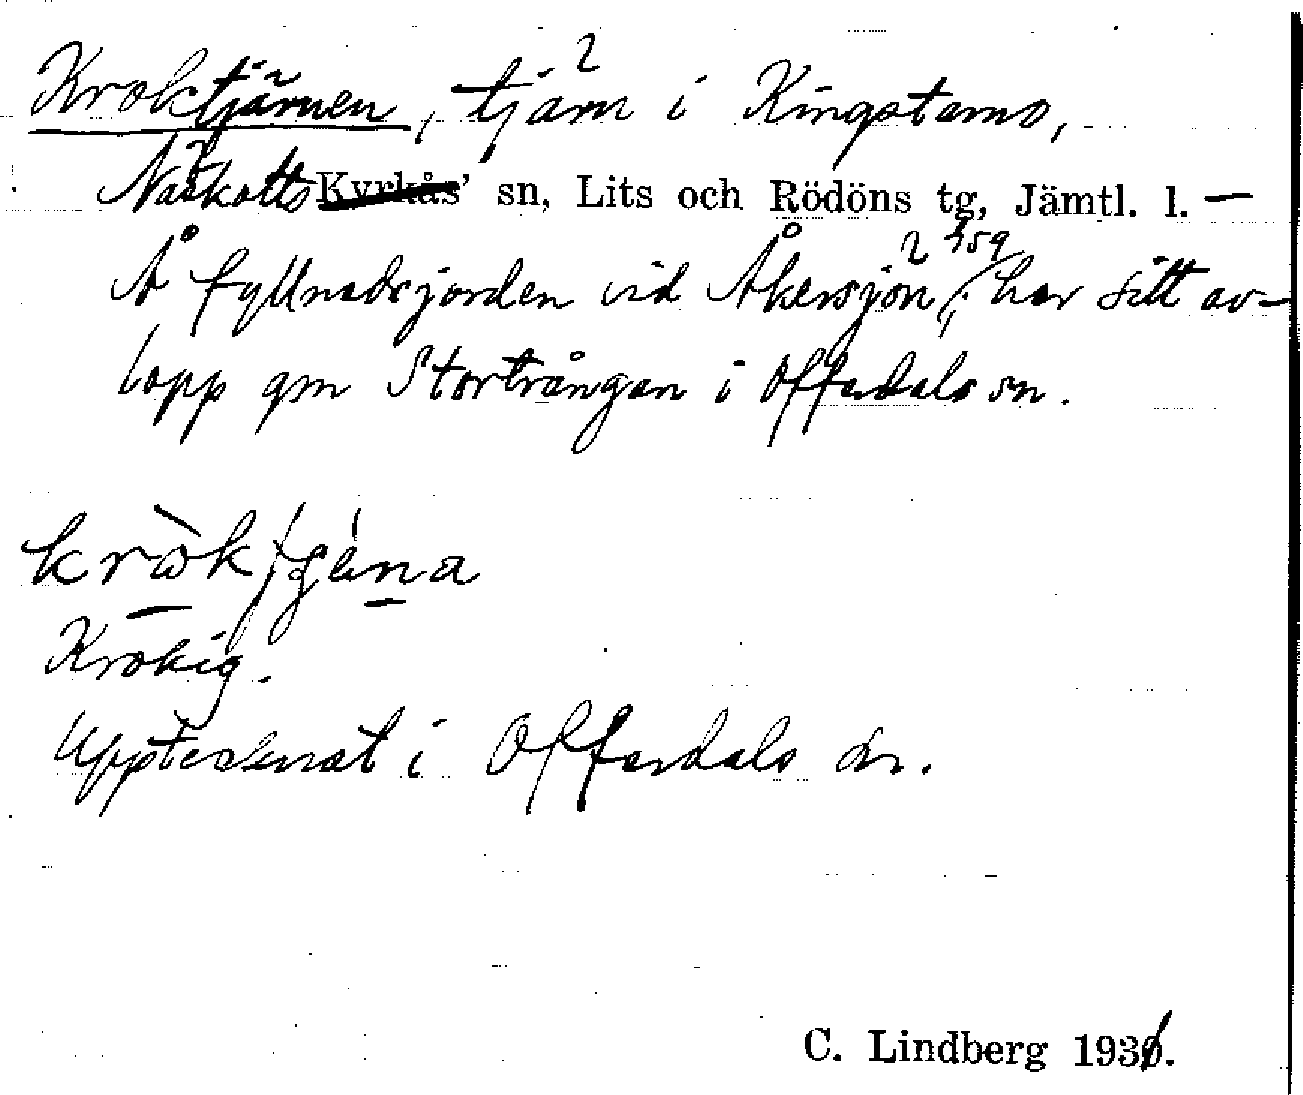 Kroktjärnen, tjärn i Kingstamo,
Näskotts Kyrkås' sn, Lits och Rödöns tg, Jämtl. l. —
Å fyllnadsjorden vid Åkersjön, har sitt av-
lopp gm Stortrången i Offerdals sn.
Krokig.
Upptecknat i Offerdals sn.
C. Lindberg 1936.